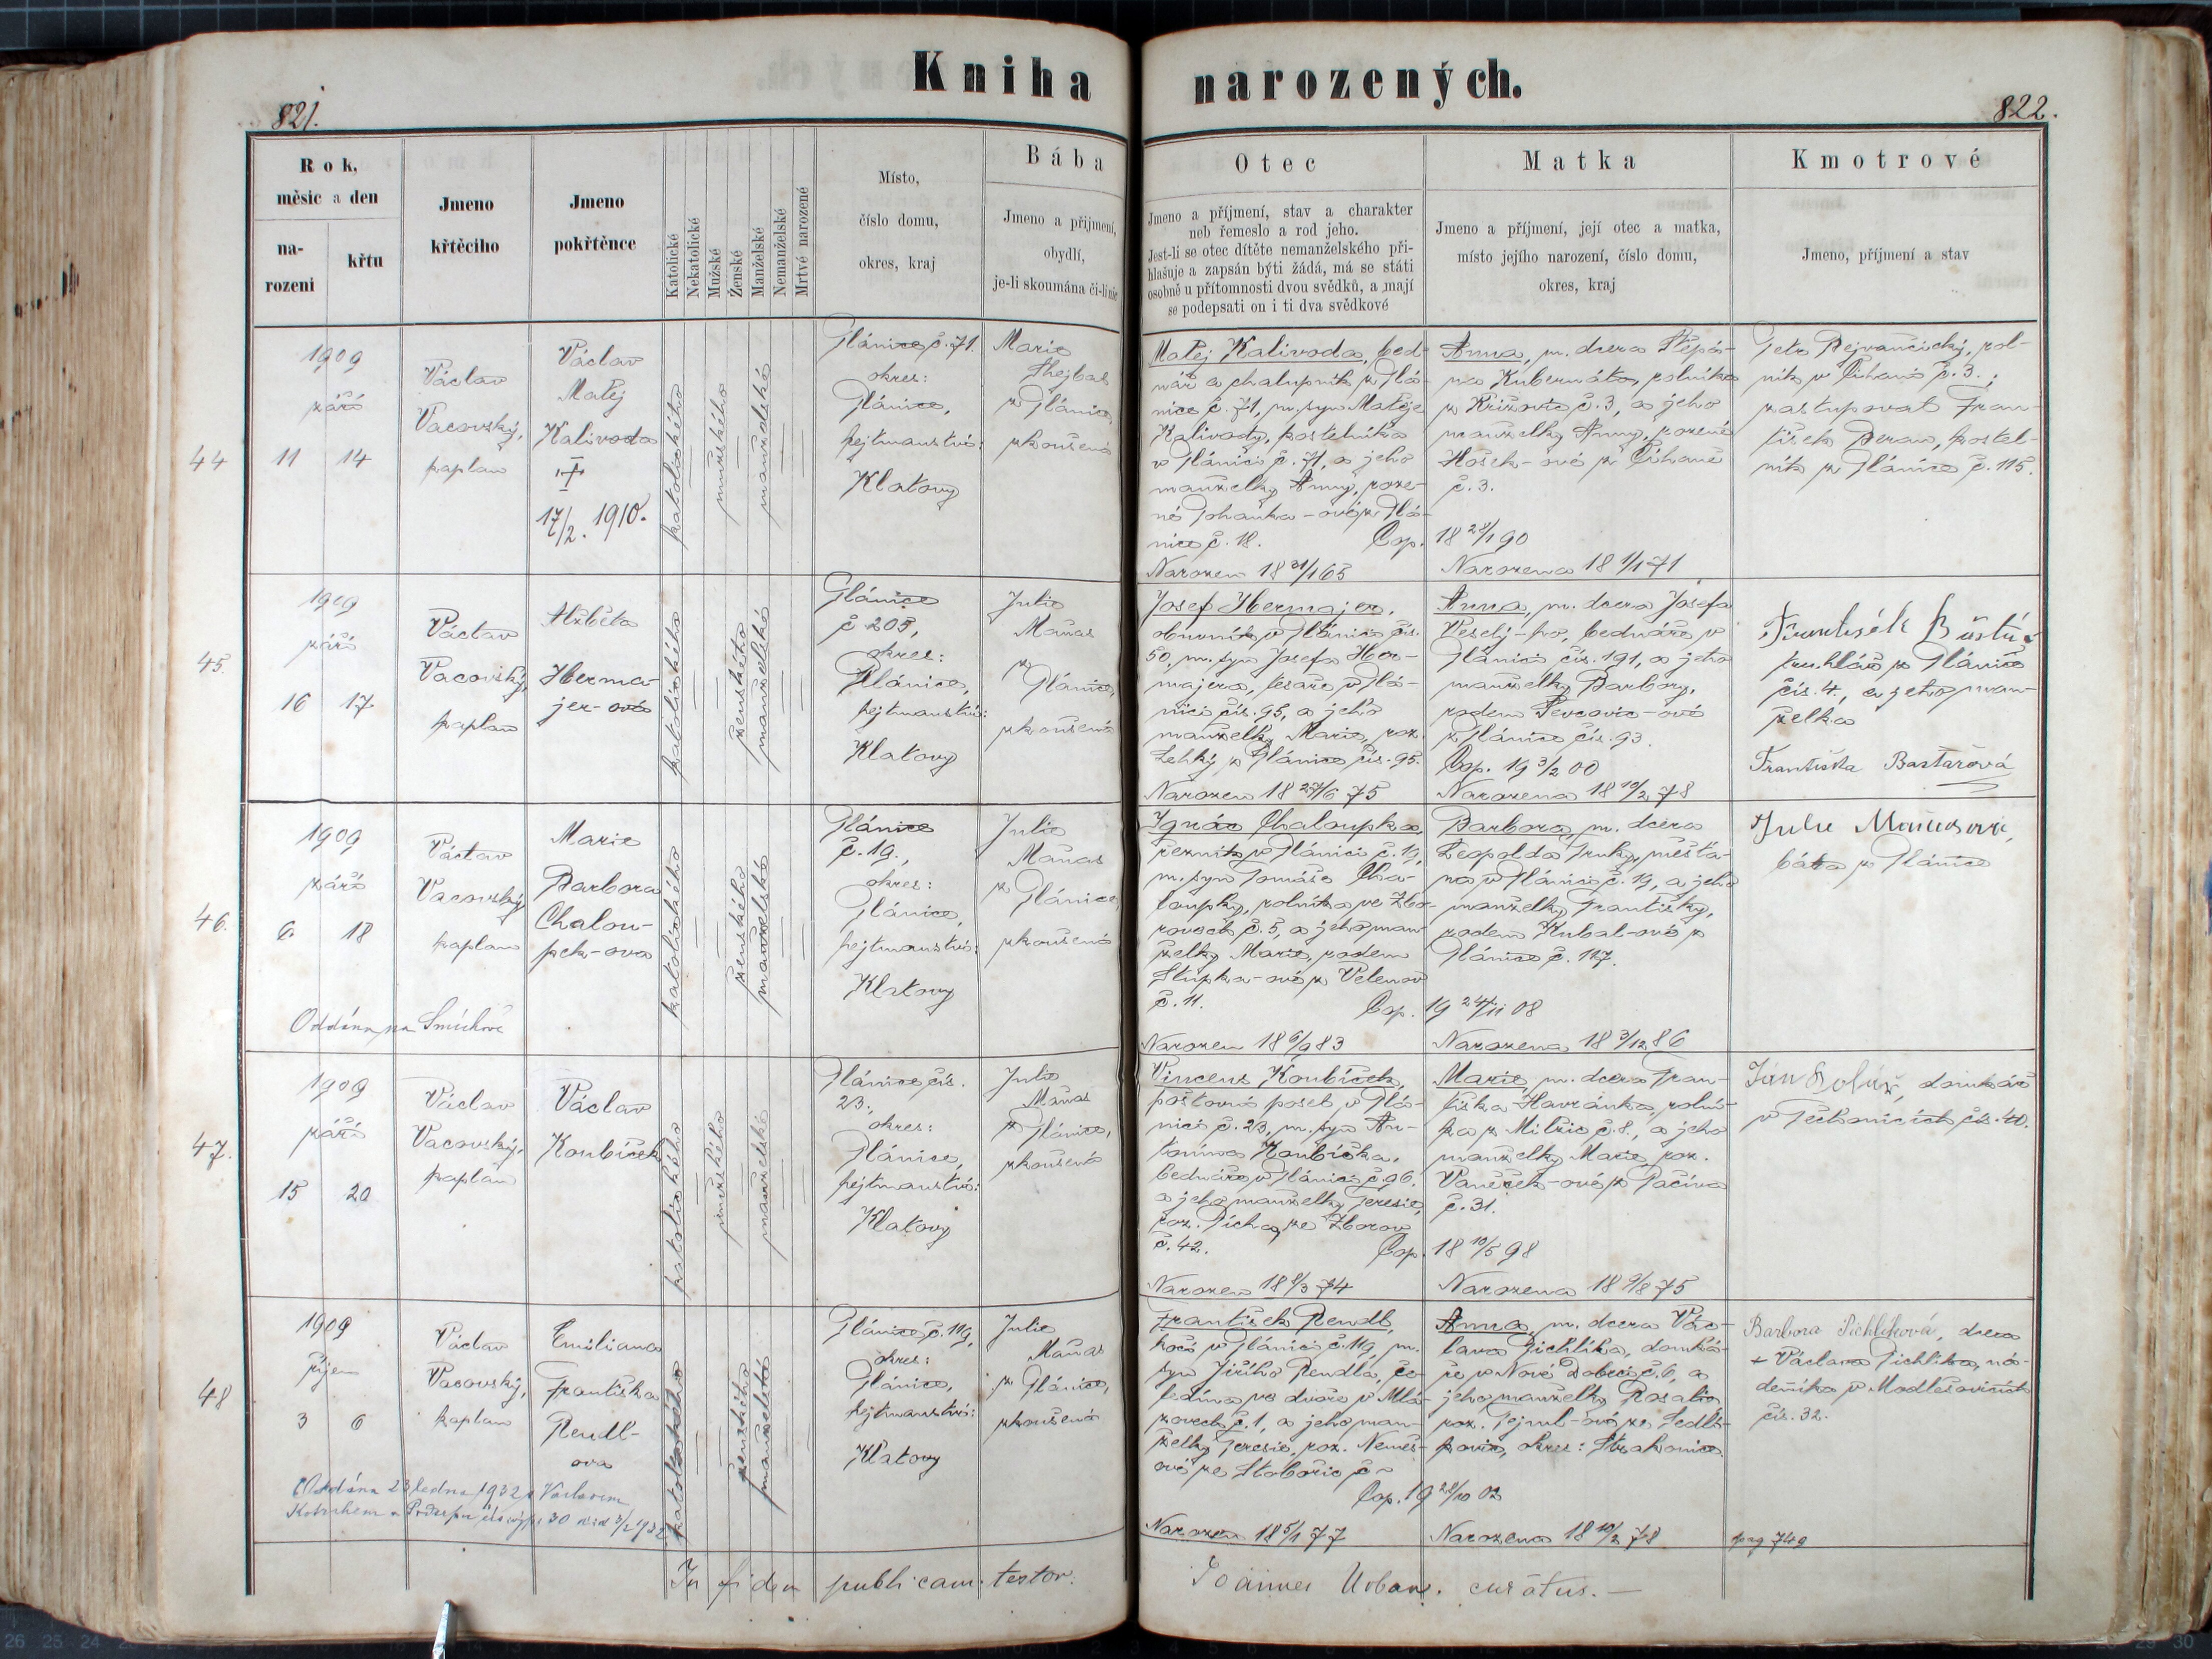 Kniha narozených.
821.
822.
Rok,
měsic a den
na-
rozeni
křtu
Jmeno
křtěciho
Jmeno
pokřtěnce
Katolické
Nekatolické
Mužské
Ženské
Manželské
Nemanželské
Mrtvé narozené
Místo,
číslo domu,
okres, kraj
Bába
Jmeno a přijmení,
obydlí,
je-li skoumána či-li nic
Otec
Jmeno a příjmení, stav a charakter
neb řemeslo a rod jeho.
Jest-li se otec dítěte nemanželského při-
hlašuje a zapsán býti žádá, má se státi
osobně u přítomnosti dvou svědků, a mají
se podepsati on i ti dva svědkové
Matka
Jmeno a příjmení, její otec a matka,
místo jejího narození, číslo domu,
okres, kraj
Kmotrové
Jmeno, příjmení a stav
44
1909
září
11 14
Václav
Vacovský,
kaplan
Václav
Matěj
Kalivoda
†
17/2. 1910.
katolického
mužského
manželské
Plánice č. 71.
okres:
Plánice,
hejtmanství:
Klatovy
Marie
Shejbal
z Plánice,
zkoušená
Matěj Kalivoda, bed-
nář a chalupník z Plá-
nice č. 71, m. syn Matěje
Kalivody, kostelníka
v Plánici č. 71, a jeho
manželky Anny, roze-
né z Plá-
nice č. 18. Cop. 18 28/1 90
Narozen 18 31/1 65
Anna, m. dcera Štěpá-
na Kubernáta, rolníka
z Křižovic č. 3, a jeho
manželky Anny, rozené
Hošek-ové z Číhaně
č. 3.
Narozena 18 1/1 71
Petr rol-
ník v Číhani č. 3.;
zastupoval Fran-
tišek Beran, kostel-
ník z Plánice č. 115.
45.
1909
září
16 17.
Václav
Vacovský,
kaplan
Alžběta
Herma-
jer-ová
katolického
ženského
manželské
Plánice
č 205,
okres:
Plánice,
hejtmanství:
Klatovy
Julie
Maňas
z
Plánice,
zkoušená
Josef Hermajer,
obuvník v Plánici čís.
50, m. syn Josefa Her-
majera, tesaře v Plá-
nici čís. 95, a jeho
manželky Marie, roz.
Lehký z Plánice čís. 95.
Narozen 18 27/6 75
Anna, m. dcera Josefa
Veselý-ho, bednáře v
Plánici čís. 191, a jeho
manželky Barbory,
rodem
z Plánice čís. 93.
Cop. 19 3/2 00
Narozena 18 10/2 78
František
truhlář z Plánice
čís. 4., a jeho man-
želka
Františka Baštařová
46.
1909
září
6. 18
Václav
Vacovský
kaplan
Marie
Barbora
Chalou-
pek-ova
katolického
ženského
manželské
Oddána na Smíchově
Plánice
č. 19.,
okres:
Plánice,
hejtmanství:
Klatovy
Julie
Maňas
z Plánice,
zkoušená
Ignác Chaloupka,
řezník v Plánici č. 19,
m. syn Tomáše Cha-
loupky, rolníka ve Zbo-
rovech č. 5, a jeho man-
želky Marie, rodem
Stupka-ové z Velenov
č. 11. Cop. 19 24/11 08
Narozen 18 6/9 83
Barbora, m. dcera
Leopolda Trnky, měšťa-
na v Plánici č. 19, a jeho
manželky Františky,
rodem Kubal-ové z
Plánice č. 117.
Narozena 18 3/12 86
Julie Maňasová,
bába z Plánice
47.
1909
září
15 20
Václav
Vacovský,
kaplan
Václav
Koubíček
katolického
mužského
manželské
Plánice čís.
23.,
okres:
Plánice,
hejtmanství:
Klatovy
Julie
Maňas
z Plánice,
zkoušená
Vincenc Koubíček,
poštovní posel v Plá-
nici č. 23, m. syn An-
tonína Koubíčka,
bednáře v Plánici č. 96.
a jeho manželky Teresie,
roz. Tichá, ze Zborov
č. 42. Cop. 18 10/5 98
Narozen 18 8/3 74
Marie, m. dcera Fran-
tiška Havránka, rolní-
ka z Milčic č. 8., a jeho
manželky Marie, roz.
Vaněček-ové z Pačína
č. 31.
Narozena 18 9/8 75
Jan Kolář, domkář
v Těchonicích čís. 40.
48
1909
říjen
3 6
Václav
Vacovský,
kaplan
Emiliana
Františka
Rendl-
ova
katolického
ženského
manželské
Oddána 23 ledna 1932 s Václavem
30 3/2 1932
Plánice č. 119,
okres:
Plánice,
hejtmanství:
Klatovy
Julie
Maňas
z Plánice,
zkoušená
František Rendl,
kočí v Plánici č. 119, m.
syn Jiřího Rendla, če-
ledína ve dvoře v Mlá-
zovech č. 1, a jeho man-
želky Teresie, roz. Nemes-
ové ze Slabořic č –
Cop. 19 28/10 02
Narozen 18 5/1 77
Anna, m. dcera Vác-
lava Pichlíka, domká-
ře v Nové Dobrči č. 6, a
jeho manželky Rosalie
roz. Tejml-ové ze Sedli-
kovic, okres: Strakonice
Narozena 18 10/2 78
Barbora Pichlíková, dcera
† Václava Pichlíka, ná-
deníka v Modlešovicích
čís. 32.
pag 749
In fidem publicam testor.
Joannes Urban. curatus. —